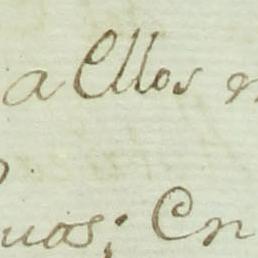 a Ellos
uas; En